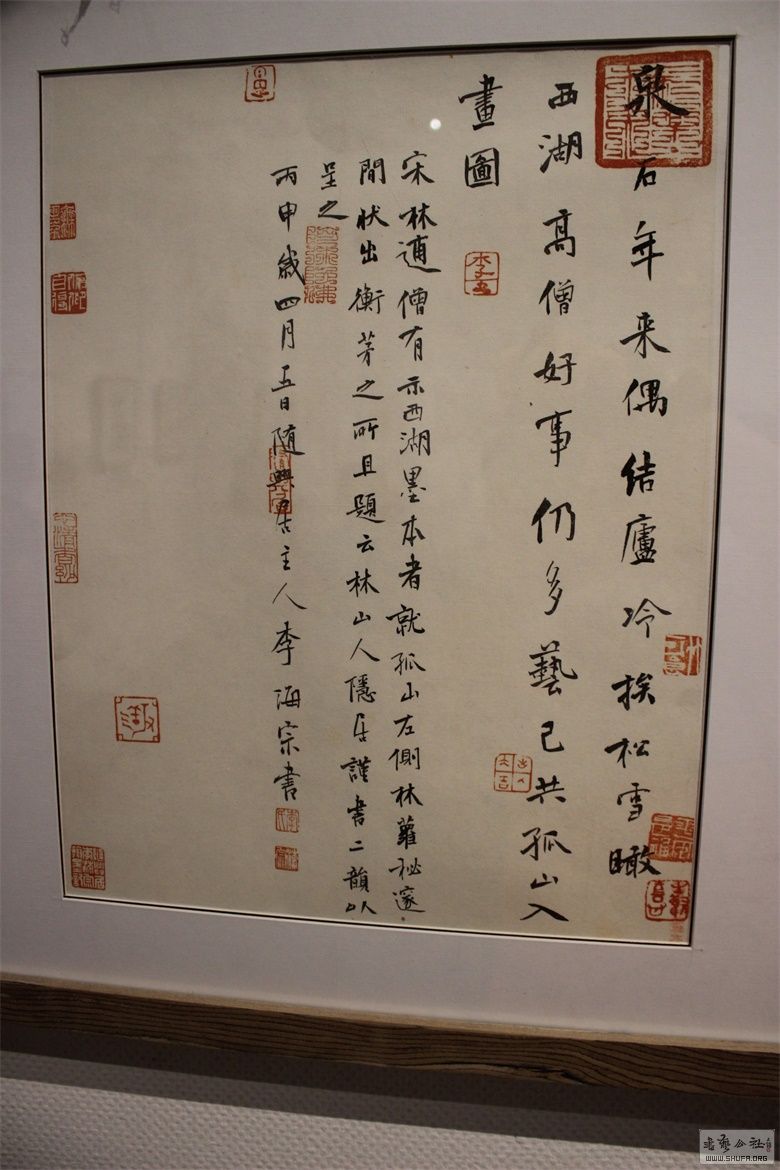 泉石年来偶结廬冷挨松雪瞰
西湖高僧好事仍多藝已共孤山入
畫圖
宋林逋僧有示西湖墨本者就孤山左側林蘿秘邃
間狀出衡茅之所且題云林山人隱居謹書二韻以
呈之
丙申歲四月五日隨興居主人李海宗書
WWW.SHUFA.ORG